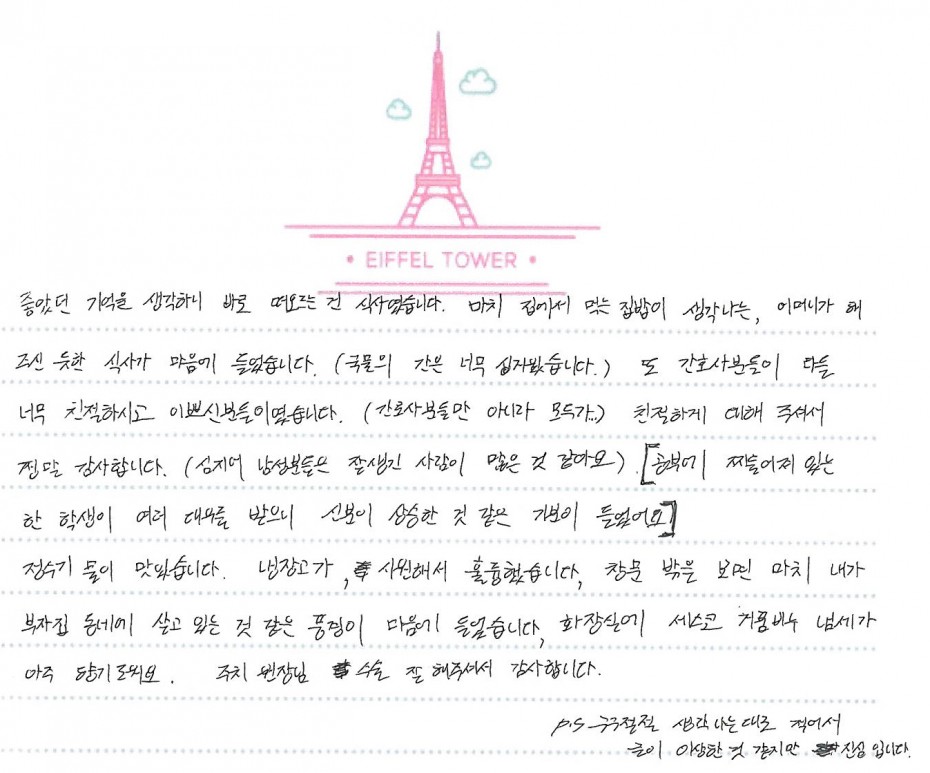 • EIFFEL TOWER •
좋았던 기억을 생각하니 바로 떠오르는 건 식사였습니다. 마치 집에서 먹는 집밥이 생각나는, 어머니가 해
주신 듯한 식사가 마음에 들었습니다. (국물의 간은 너무 싱거웠습니다.) 또 간호사분들이 다들
너무 친절하시고 이쁘신분들이였습니다. (간호사분들만 아니라 모두가..) 친절하게 대해 주셔서
정말 감사합니다. (심지어 남성분들은 잘생긴 사람이 많은 것 같아요). [공부에 찌들어져 있는
한 학생이 여러 대우를 받으니 신분이 상승한 것 같은 기분이 들었어요]
정수기 물이 맛있습니다. 냉장고가, 시원해서 훌륭했습니다, 창문 밖을 보면 마치 내가
부자집 동네에 살고 있는 것 같은 풍경이 마음에 들었습니다, 화장실에 세스코 거품비누 냄세가
아주 향기로워요. 주치 원장님 수술 잘 해주셔서 감사합니다.
p.s 구구절절 생각나는대로 적어서
글이 이상한 것 같지만 진심 입니다.